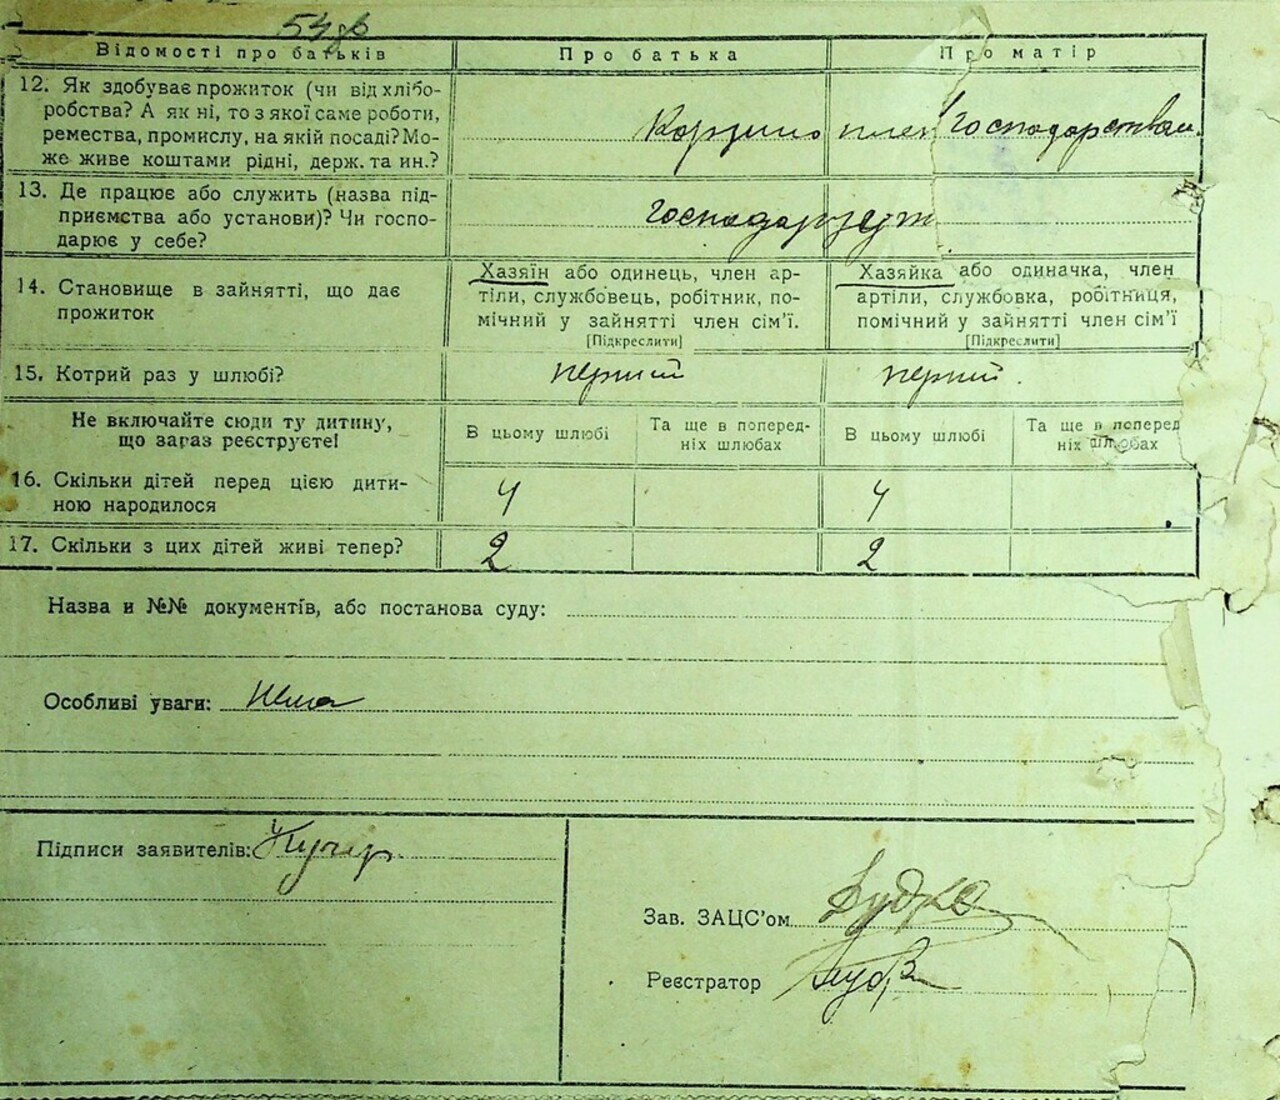 54
Відомості про батьків
Про батька
Про матір
12. Як здобуває прожиток (чи від хлібо-
робства? А як ні, то з якої саме роботи,
ремества, промислу, на якій посаді? Мо-
же живе коштами рідні, держ. та ин.?
господарством
13. Де працює або служить (назва під-
приємства або установи)? Чи госпо-
дарює у себе?
14. Становище в зайнятті, що дає
прожиток
Хазяїн або одинець, член ар-
тіли, службовець, робітник, по-
мічний у зайнятті член сім’ї.
[Підкреслити]
Хазяйка або одиначка, член
артіли, службовка, робітниця,
помічний у зайнятті член сім’ї
[Підкреслити]
15. Котрий раз у шлюбі?
перший
перший
Не включайте сюди ту дитину,
що зараз реєструєте!
В цьому шлюбі
Та ще в поперед-
ніх шлюбах
В цьому шлюбі
Та ще в поперед
ніх шлюбах
16. Скільки дітей перед цією дити-
ною народилося
4
4
17. Скільки з цих дітей живі тепер?
2
2
Назва и №№ документів, або постанова суду:
Особливі уваги: Нема
Підписи заявителів: Кучер
Зав. ЗАЦС’ом
Реєстратор